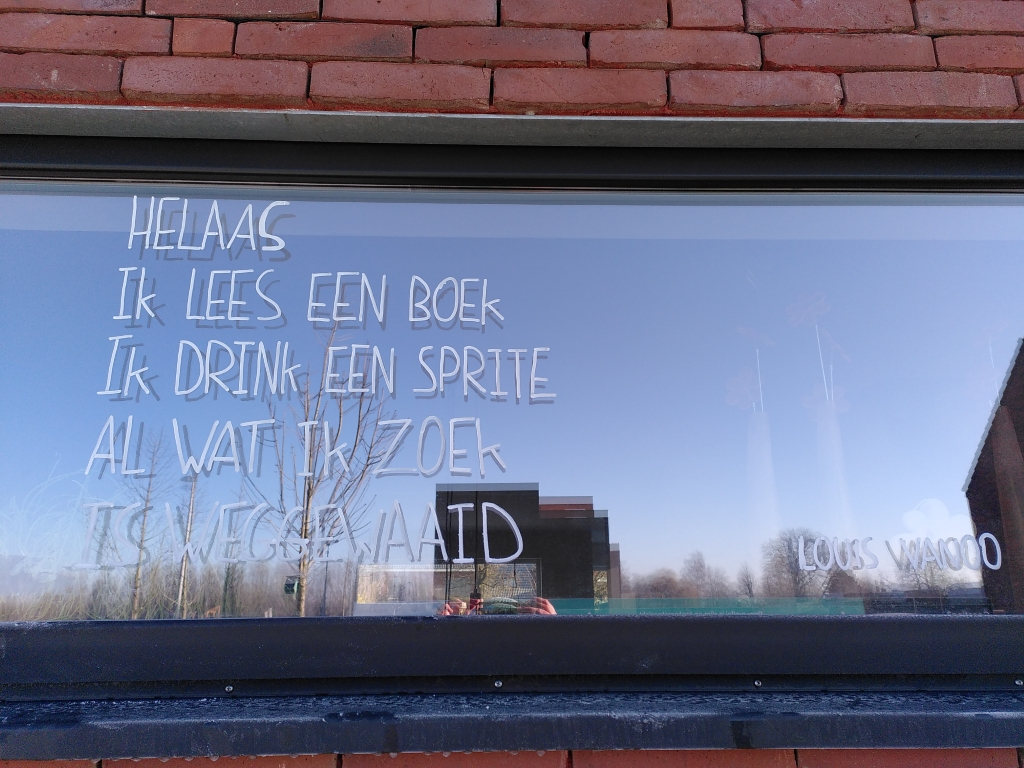 HELAAS
Ik LEES EEN BOEk
Ik DRINk EEN SPRITE
AL WAT Ik ZOEk
IS WEGGEWAAID
LOUIS